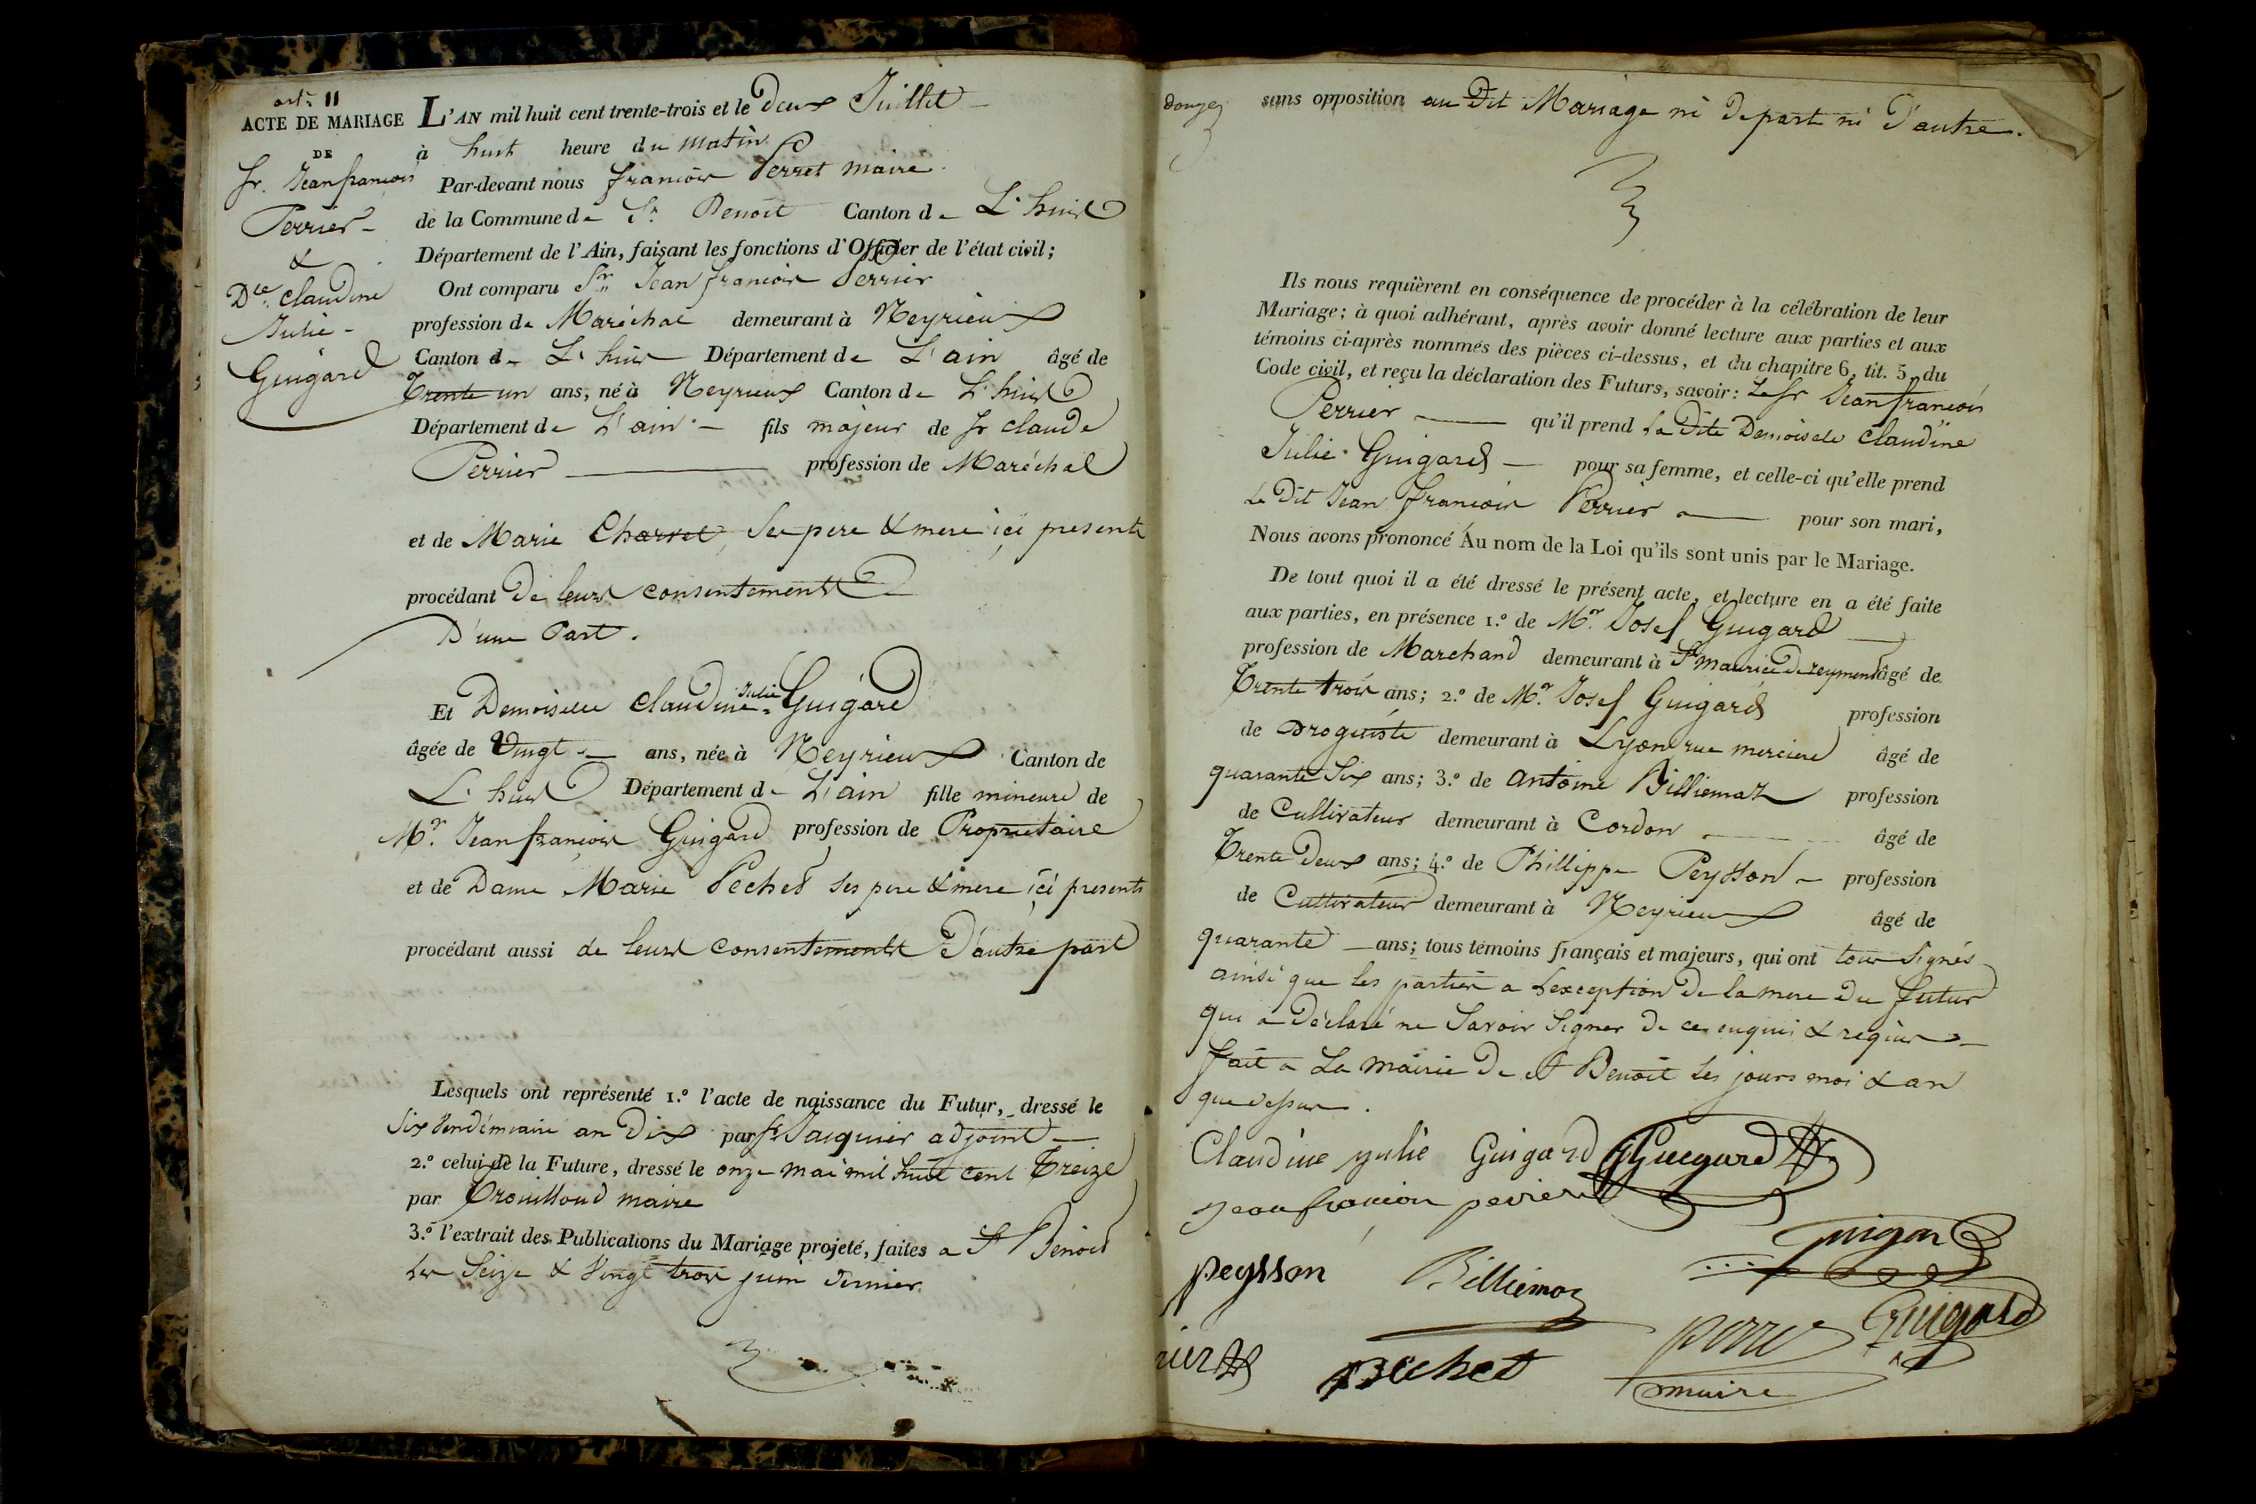 art. 11
ACTE DE MARIAGE
DE
Sr. Jean françois
Perrier
&
Dle. Claudine
Julie
Guigard
L'AN mil huit cent trente-trois et le Deux Juillet
à huit heure du matin
Par-devant nous françois Perret maire
de la Commune de St. Benoit Canton de L'huis
Département de l'Ain, faisant les fonctions d'Officier de l'état civil;
Ont comparu Sr. Jean françois Perrier
profession de Maréchal demeurant à Neyrieux
Canton de L'huis Département de L'ain âgé de
Trente un ans, né à Neyrieux Canton de L'huis
Département de L'ain fils majeur de Sr claude
Perrier profession de Maréchal
et de Marie Charvet, Ses pere & mere ici presents
procédant De leurs consentements
D'une Part.
Et Demoiselle Claudine Julie Guigard
âgée de Vingt ans, née à Neyrieux Canton de
L'huis Département de L'ain fille mineure de
Mr. Jean françois Guigard profession de Propriétaire
et de Dame Marie Pechet ses pere & mere ici presents
procédant aussi de leurs consentements D'autre part
Lesquels ont représenté 1.º l'acte de naissance du Futur, dressé le
Six Vendémiaire an Dix par Sr Jacquier adjoint
2.º celui de la Future, dressé le onze mai mil huit cent Treize
par Trouilloud maire
3.º l'extrait des Publications du Mariage projeté, faites a St Benoit
les Seize & Vingt trois juin dernier
Douze
sans opposition au Dit Mariage ni De part ni D'autre.
Ils nous requièrent en conséquence de procéder à la célébration de leur
Mariage; à quoi adhérant, après avoir donné lecture aux parties et aux
témoins ci-après nommés des pièces ci-dessus, et du chapitre 6, tit. 5, du
Code civil, et reçu la déclaration des Futurs, savoir: Le Sr Jean françois
Perrier qu'il prend la Dite Demoiselle Claudine
Julie Guigard pour sa femme, et celle-ci qu'elle prend
Le Dit Jean françois Perrier pour son mari,
Nous avons prononcé Au nom de la Loi qu'ils sont unis par le Mariage.
De tout quoi il a été dressé le présent acte, et lecture en a été faite
aux parties, en présence 1.º de Mr. Josef Guigard
profession de Marchand demeurant à St maurice De reymens âgé de
Trente trois ans; 2.º de Mr. Josef Guigard profession
de Droguiste demeurant à Lyon rue merciere âgé de
quarante Six ans; 3.º de antoine Billiemaz profession
de Cultivateur demeurant à Cordon âgé de
Trente Deux ans; 4.º de Phillippe Peysson profession
de Cultivateur demeurant à Neyrieux âgé de
quarante ans; tous témoins français et majeurs, qui ont tous Signés
ainsi que les parties a L'exception De la mere Du futur
qui a Déclaré ne Savoir Signer De ce enquis & requis
fait a La Mairie De St Benoit Les jours moi & an
que dessus.
Claudine julie Guigard Guigard
jean françois perier
Guigard
peysson Billiemaz
Guigard
Perret
pechet
maire